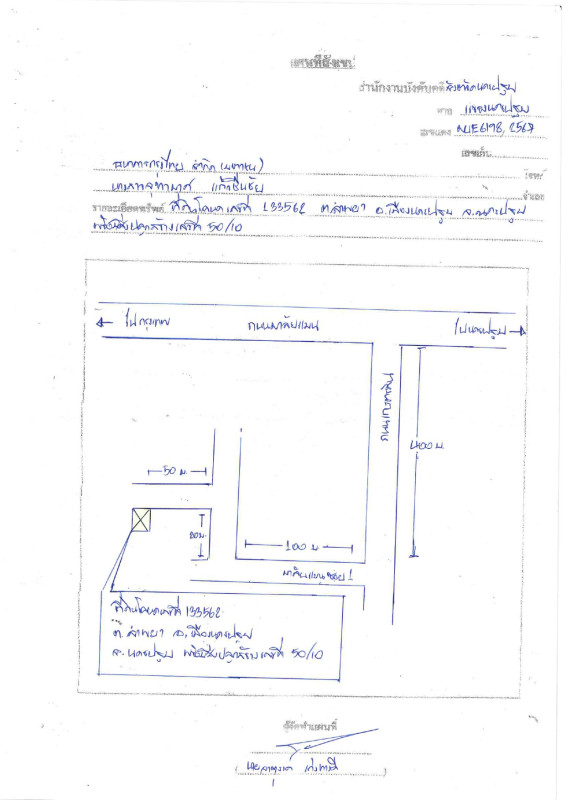 แผนที่สังเขป
สำนักงานบังคับคดีจังหวัดนครปฐม
ศาล แขวงนครปฐม
เลขแดง ผบE6198, 2567
เลขเก็บ
ธนาคารกรุงไทย จำกัด (มหาชน) โจทก์
จำเลย
รายละเอียดทรัพย์ ที่ดินโฉนดเลขที่ 133562 ต.ลำพยา อ.เมืองนครปฐม จ.นครปฐม
พร้อมสิ่งปลูกสร้างเลขที่ 50/10
ไปกรุงเทพ
ถนนมาลัยแมน
ไปนครปฐม
400 ม.
50 ม.
20 ม.
100 ม.
มาลัยแมน ซอย 1
ที่ดินโฉนดเลขที่ 133562
ต.ลำพยา อ.เมืองนครปฐม
จ.นครปฐม พร้อมสิ่งปลูกสร้างเลขที่ 50/10
ผู้จัดทำแผนที่